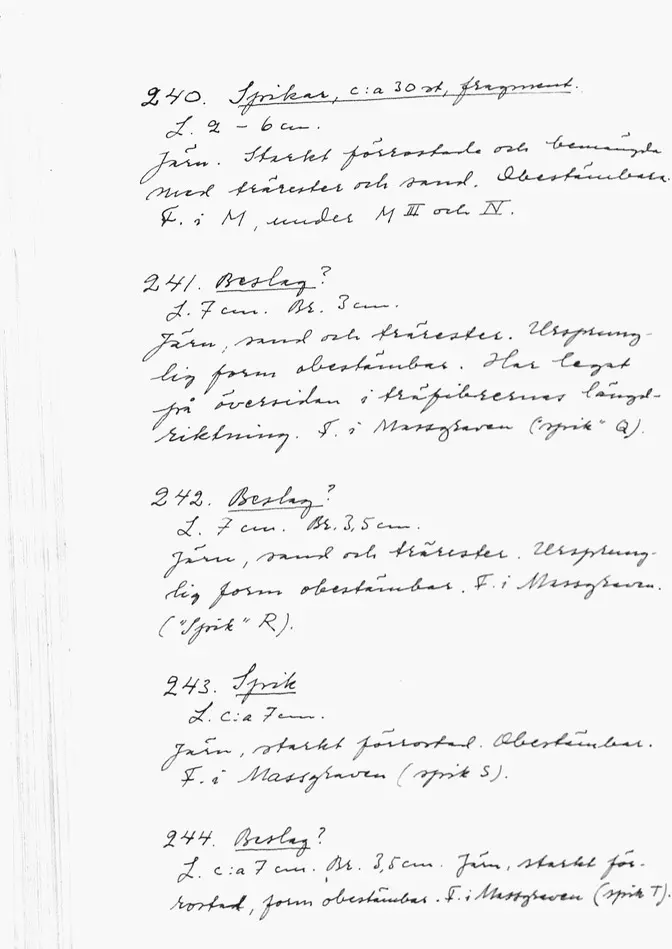 240. Spikar, c:a 30 st, fragment.
L. 2 - 6 cm.
Järn. Starkt förrostade och bemängda
med trärester och sand. Obestämbara.
F. i M, under M III och IV.
241. Beslag?
L. 7 cm. Br. 3 cm.
Järn, sand och trärester. Ursprung-
lig form obestämbar. Har legat
på översidan i träfibrernas längd-
riktning. F. i Massgraven ("spik" Q).
242. Beslag?
L. 7 cm. Br. 3,5 cm.
Järn, sand och trärester. Ursprung-
lig form obestämbar. F. i Massgraven.
("Spik" R).
243. Spik
L. c:a 7 cm.
Järn, starkt förrostad. Obestämbar.
F. i Massgraven (spik S).
244. Beslag?
L. c:a 7 cm. Br. 3,5 cm. Järn, starkt för-
rostad, form obestämbar. F. i Massgraven (spik T).